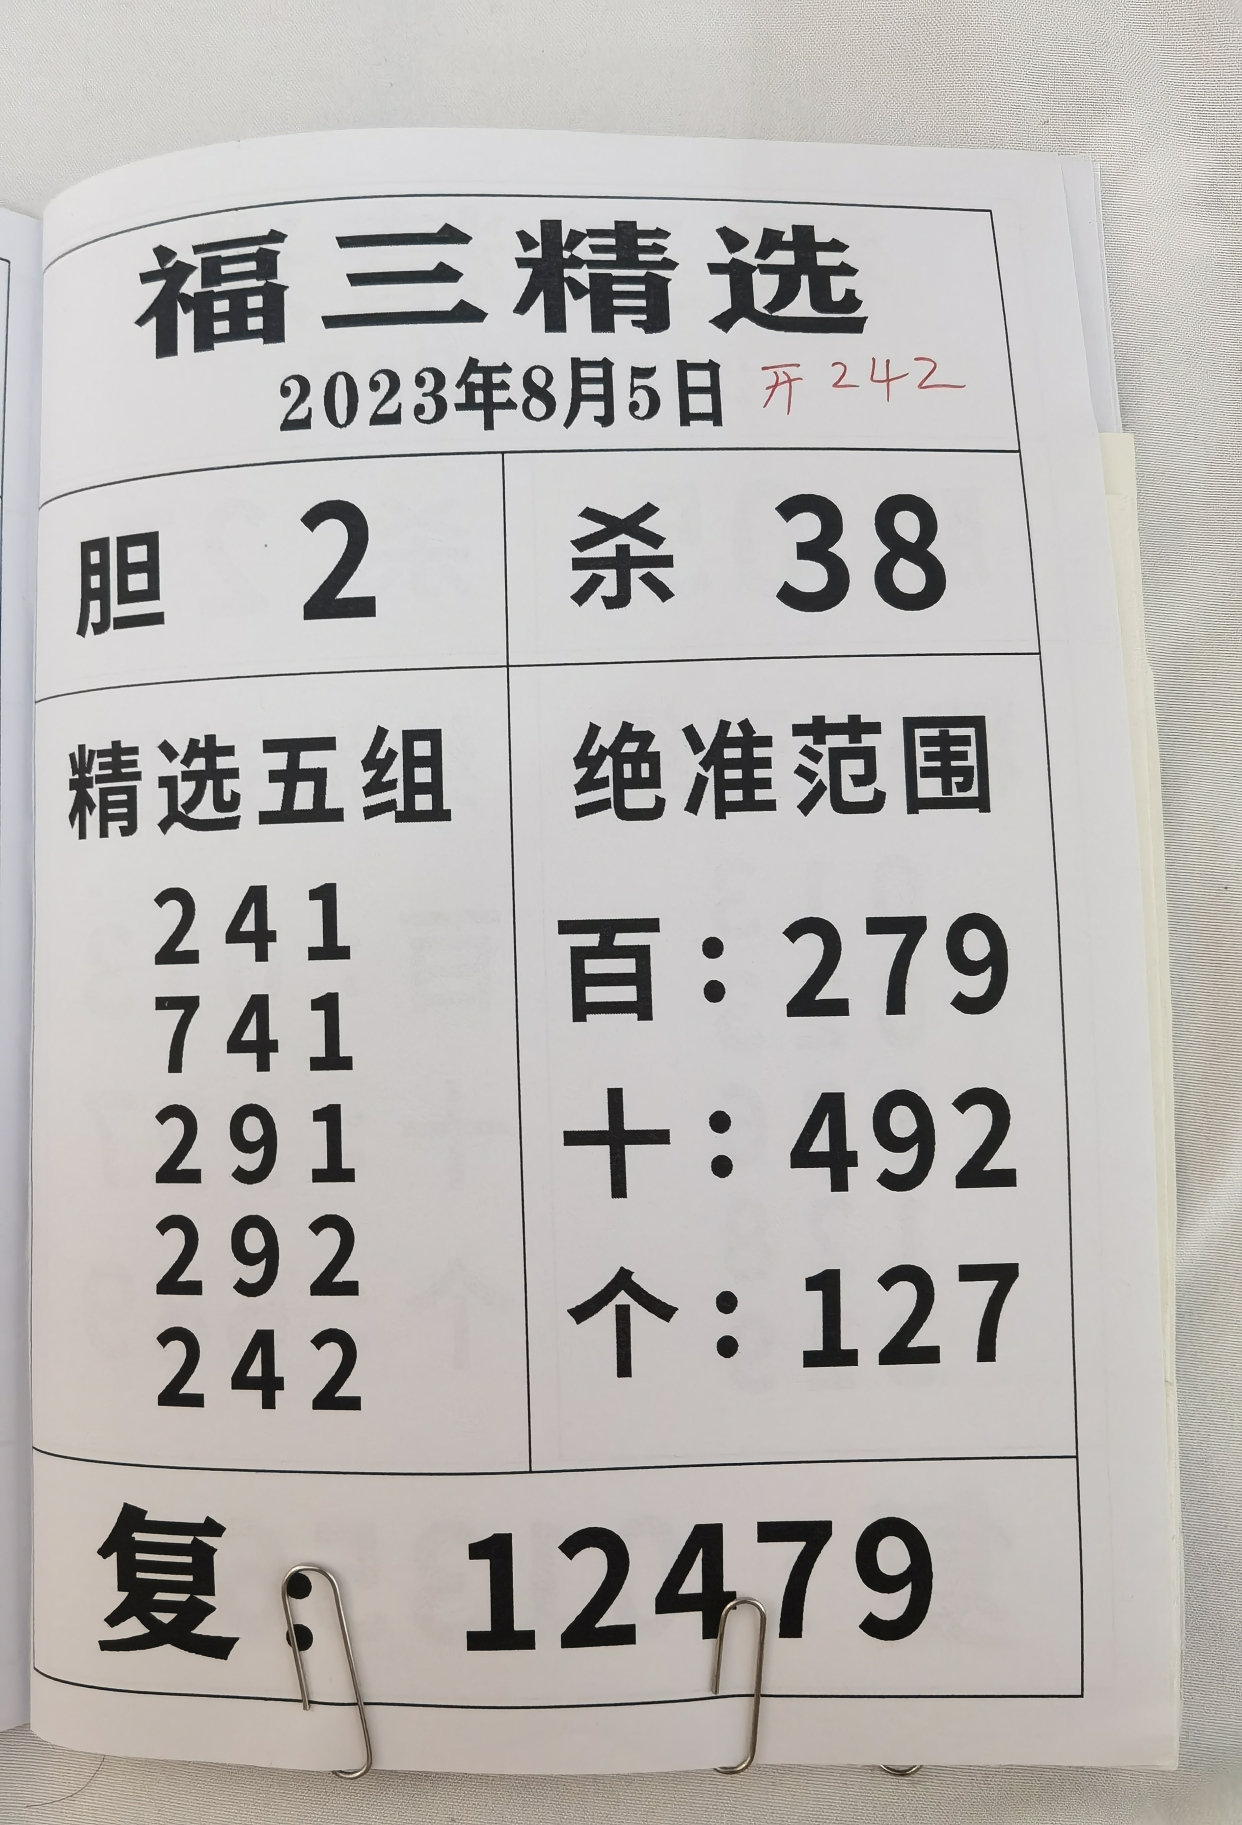 福三精选
2023年8月5日 开 242
胆 2
杀 38
精选五组
241
741
291
292
242
绝准范围
百：279
十：492
个：127
复：12479